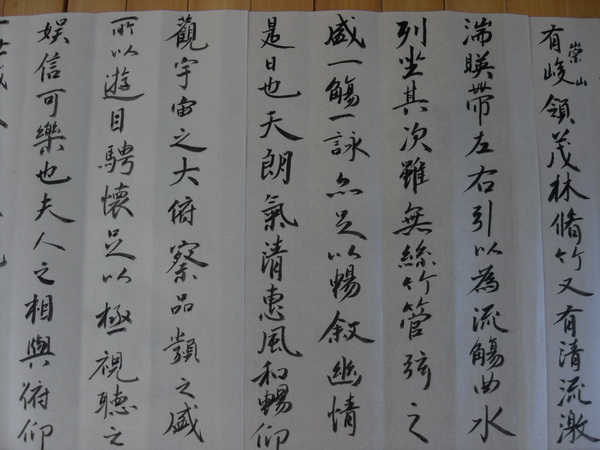 有崇山峻領茂林脩竹又有清流激
湍暎帶左右引以為流觴曲水
列坐其次雖無絲竹管弦之
盛一觴一詠亦足以暢敘幽情
是日也天朗氣清惠風和暢仰
觀宇宙之大俯察品類之盛
所以遊目騁懷足以極視聽之
娛信可樂也夫人之相與俯仰